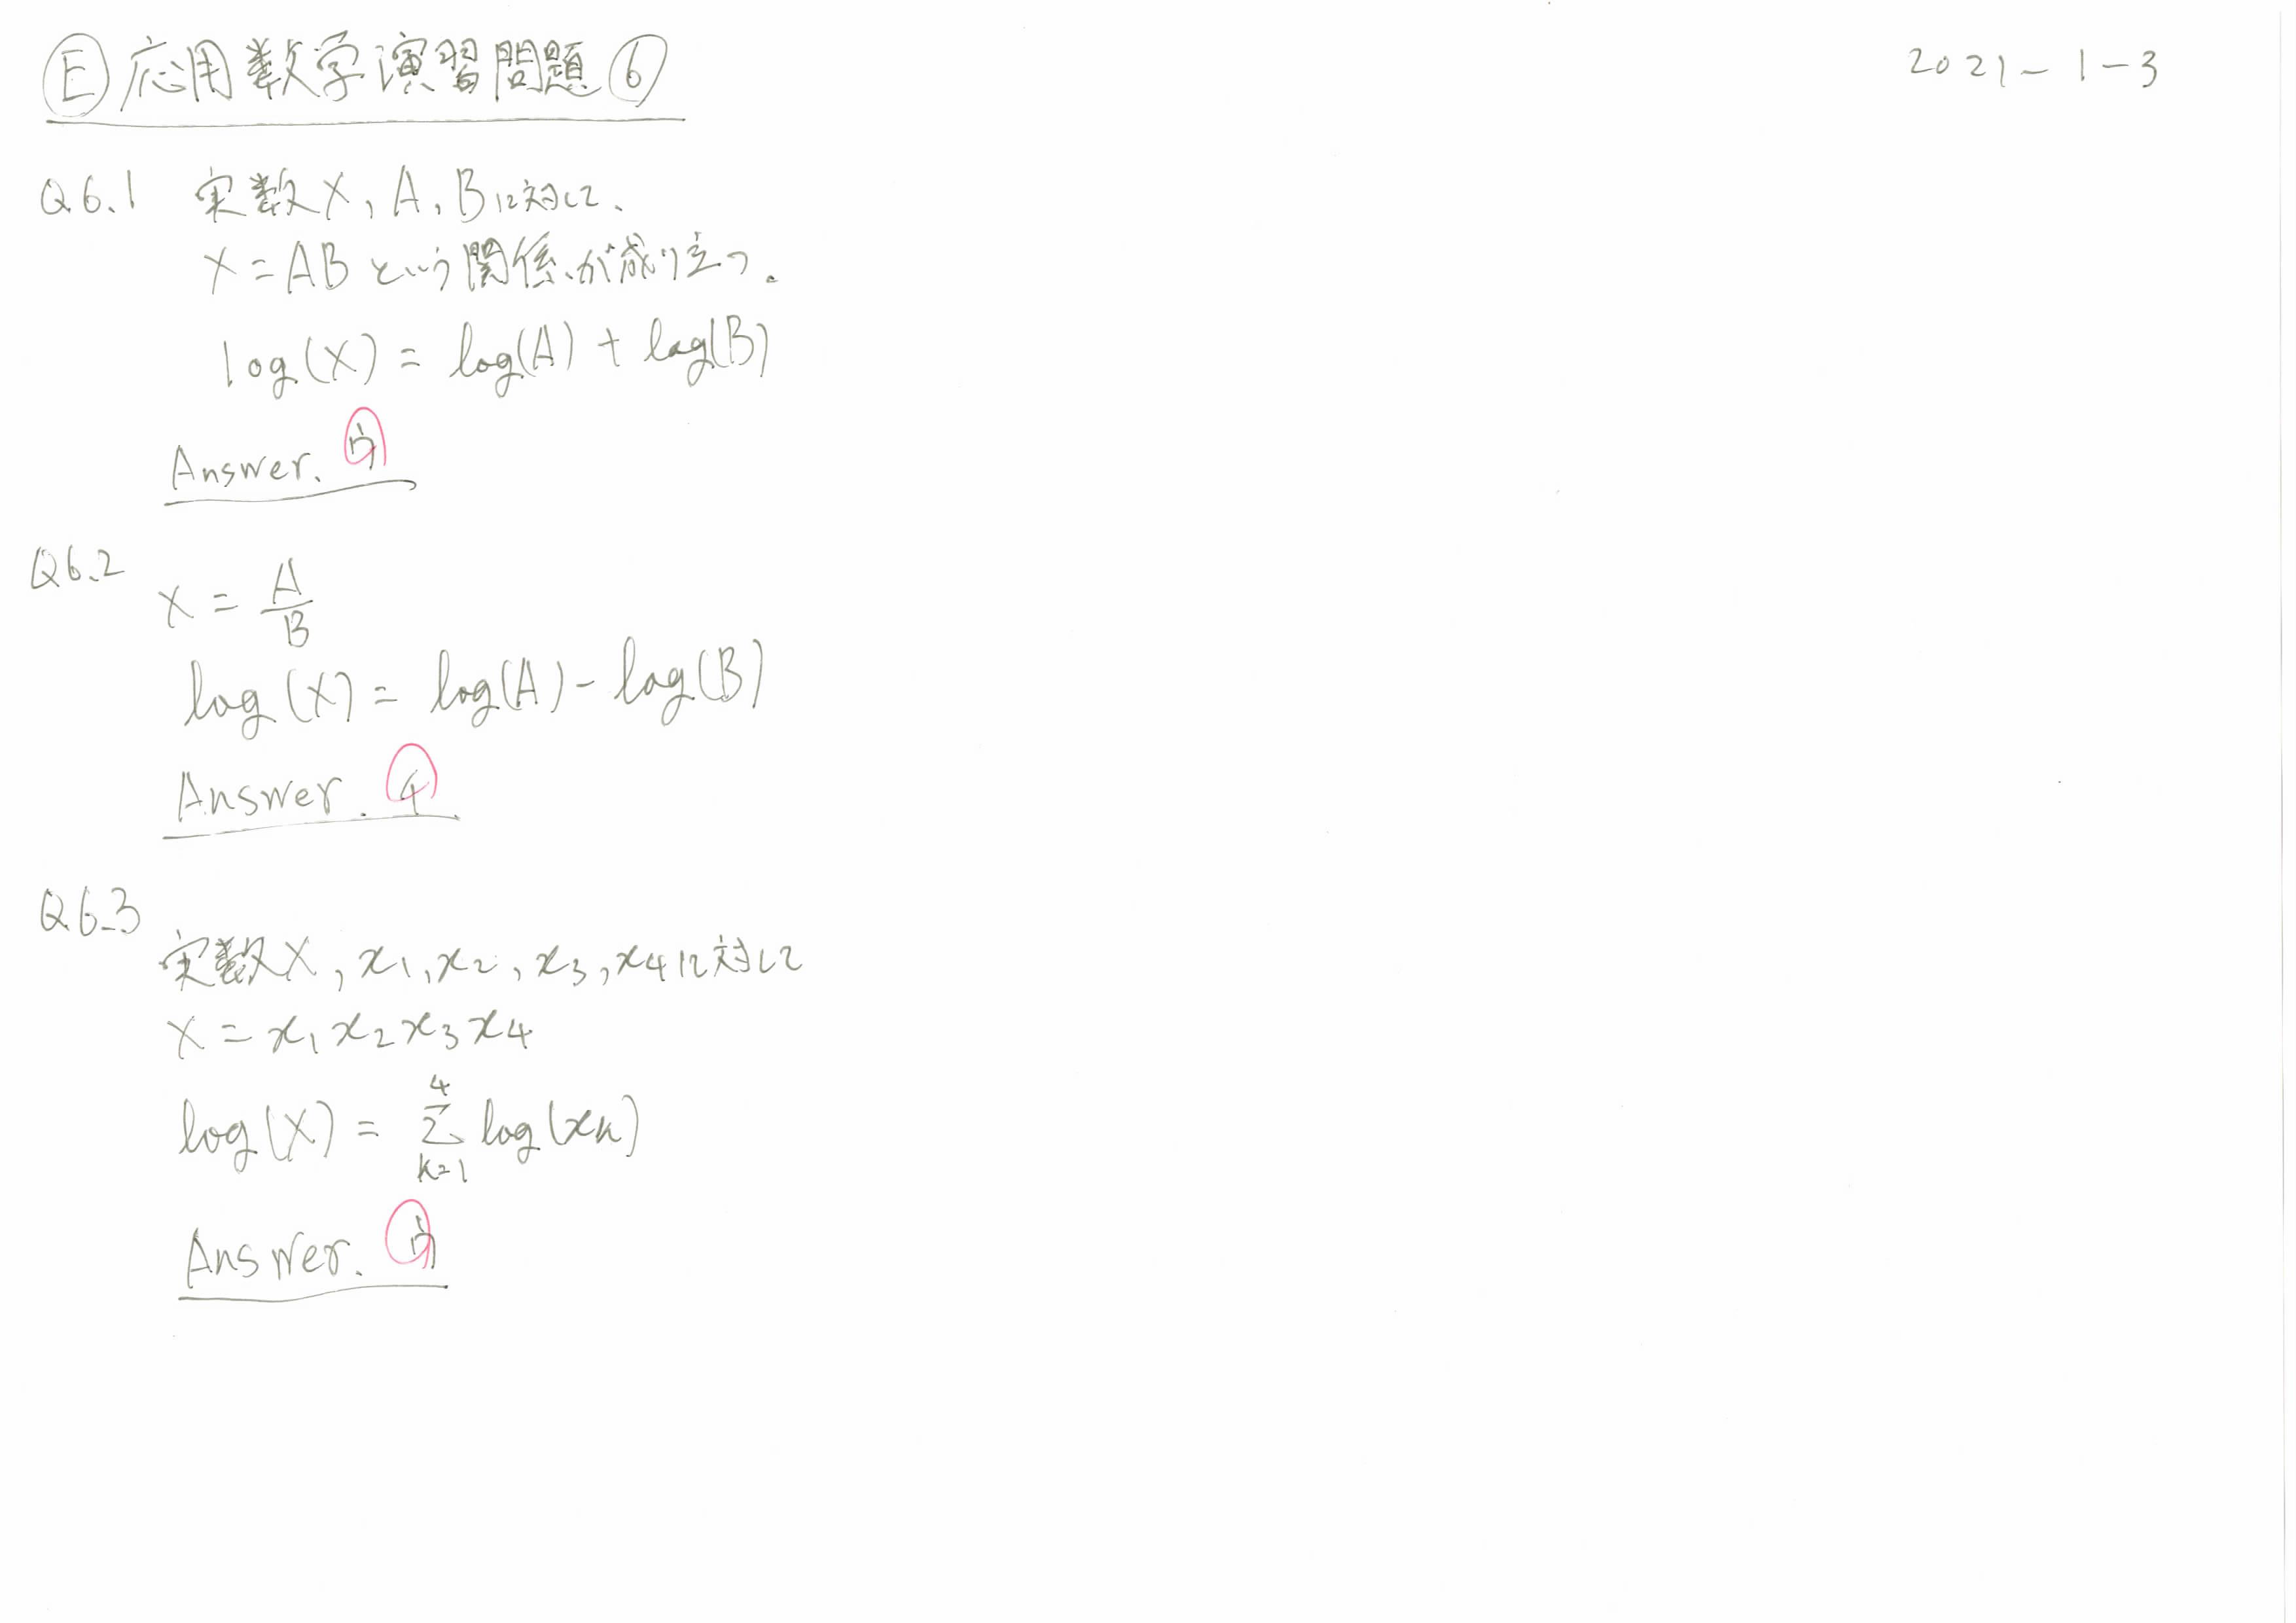 Ⓔ応用数学演習問題⑥
2021-1-3
Q6.1 実数X, A, Bに対して、
X=ABという関係が成り立つ。
log(X) = log(A) + log(B)
Answer. う
Q6.2
X = A/B
log(X) = log(A) - log(B)
Answer. イ
Q6.3
実数X, x1, x2, x3, x4に対して
X = x1 x2 x3 x4
log(X) = Σ_{k=1}^{4} log(xk)
Answer. う